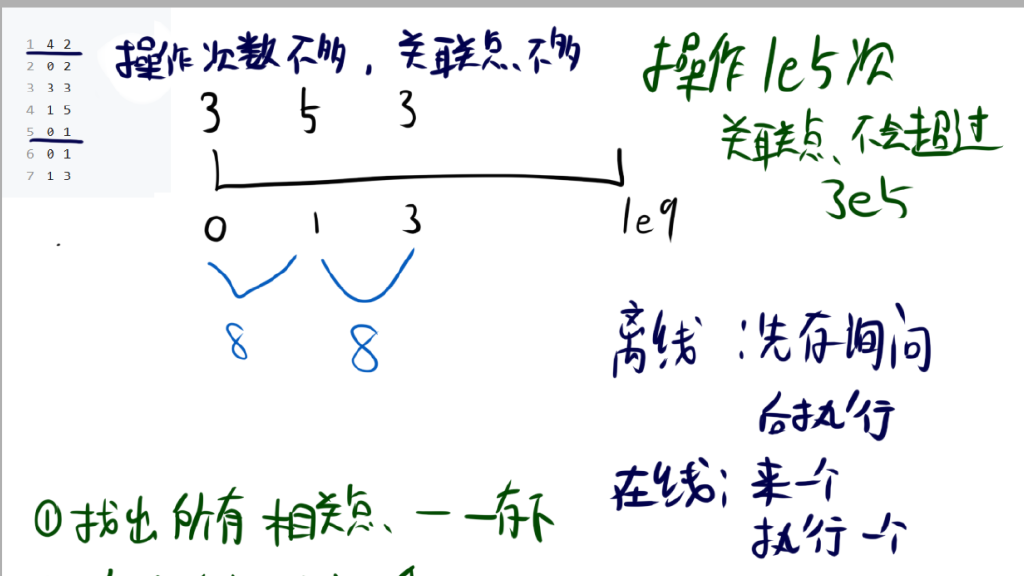 1 4 2
2 0 2
3 3 3
4 1 5
5 0 1
6 0 1
7 1 3
操作次数不多，关联点不多
3 5 3
0 1 3 1e9
8 8
操作1e5次
关联点不会超过
3e5
离线：先存询问
后执行
在线：来一个
执行一个
①找出所有相关点、一一存下